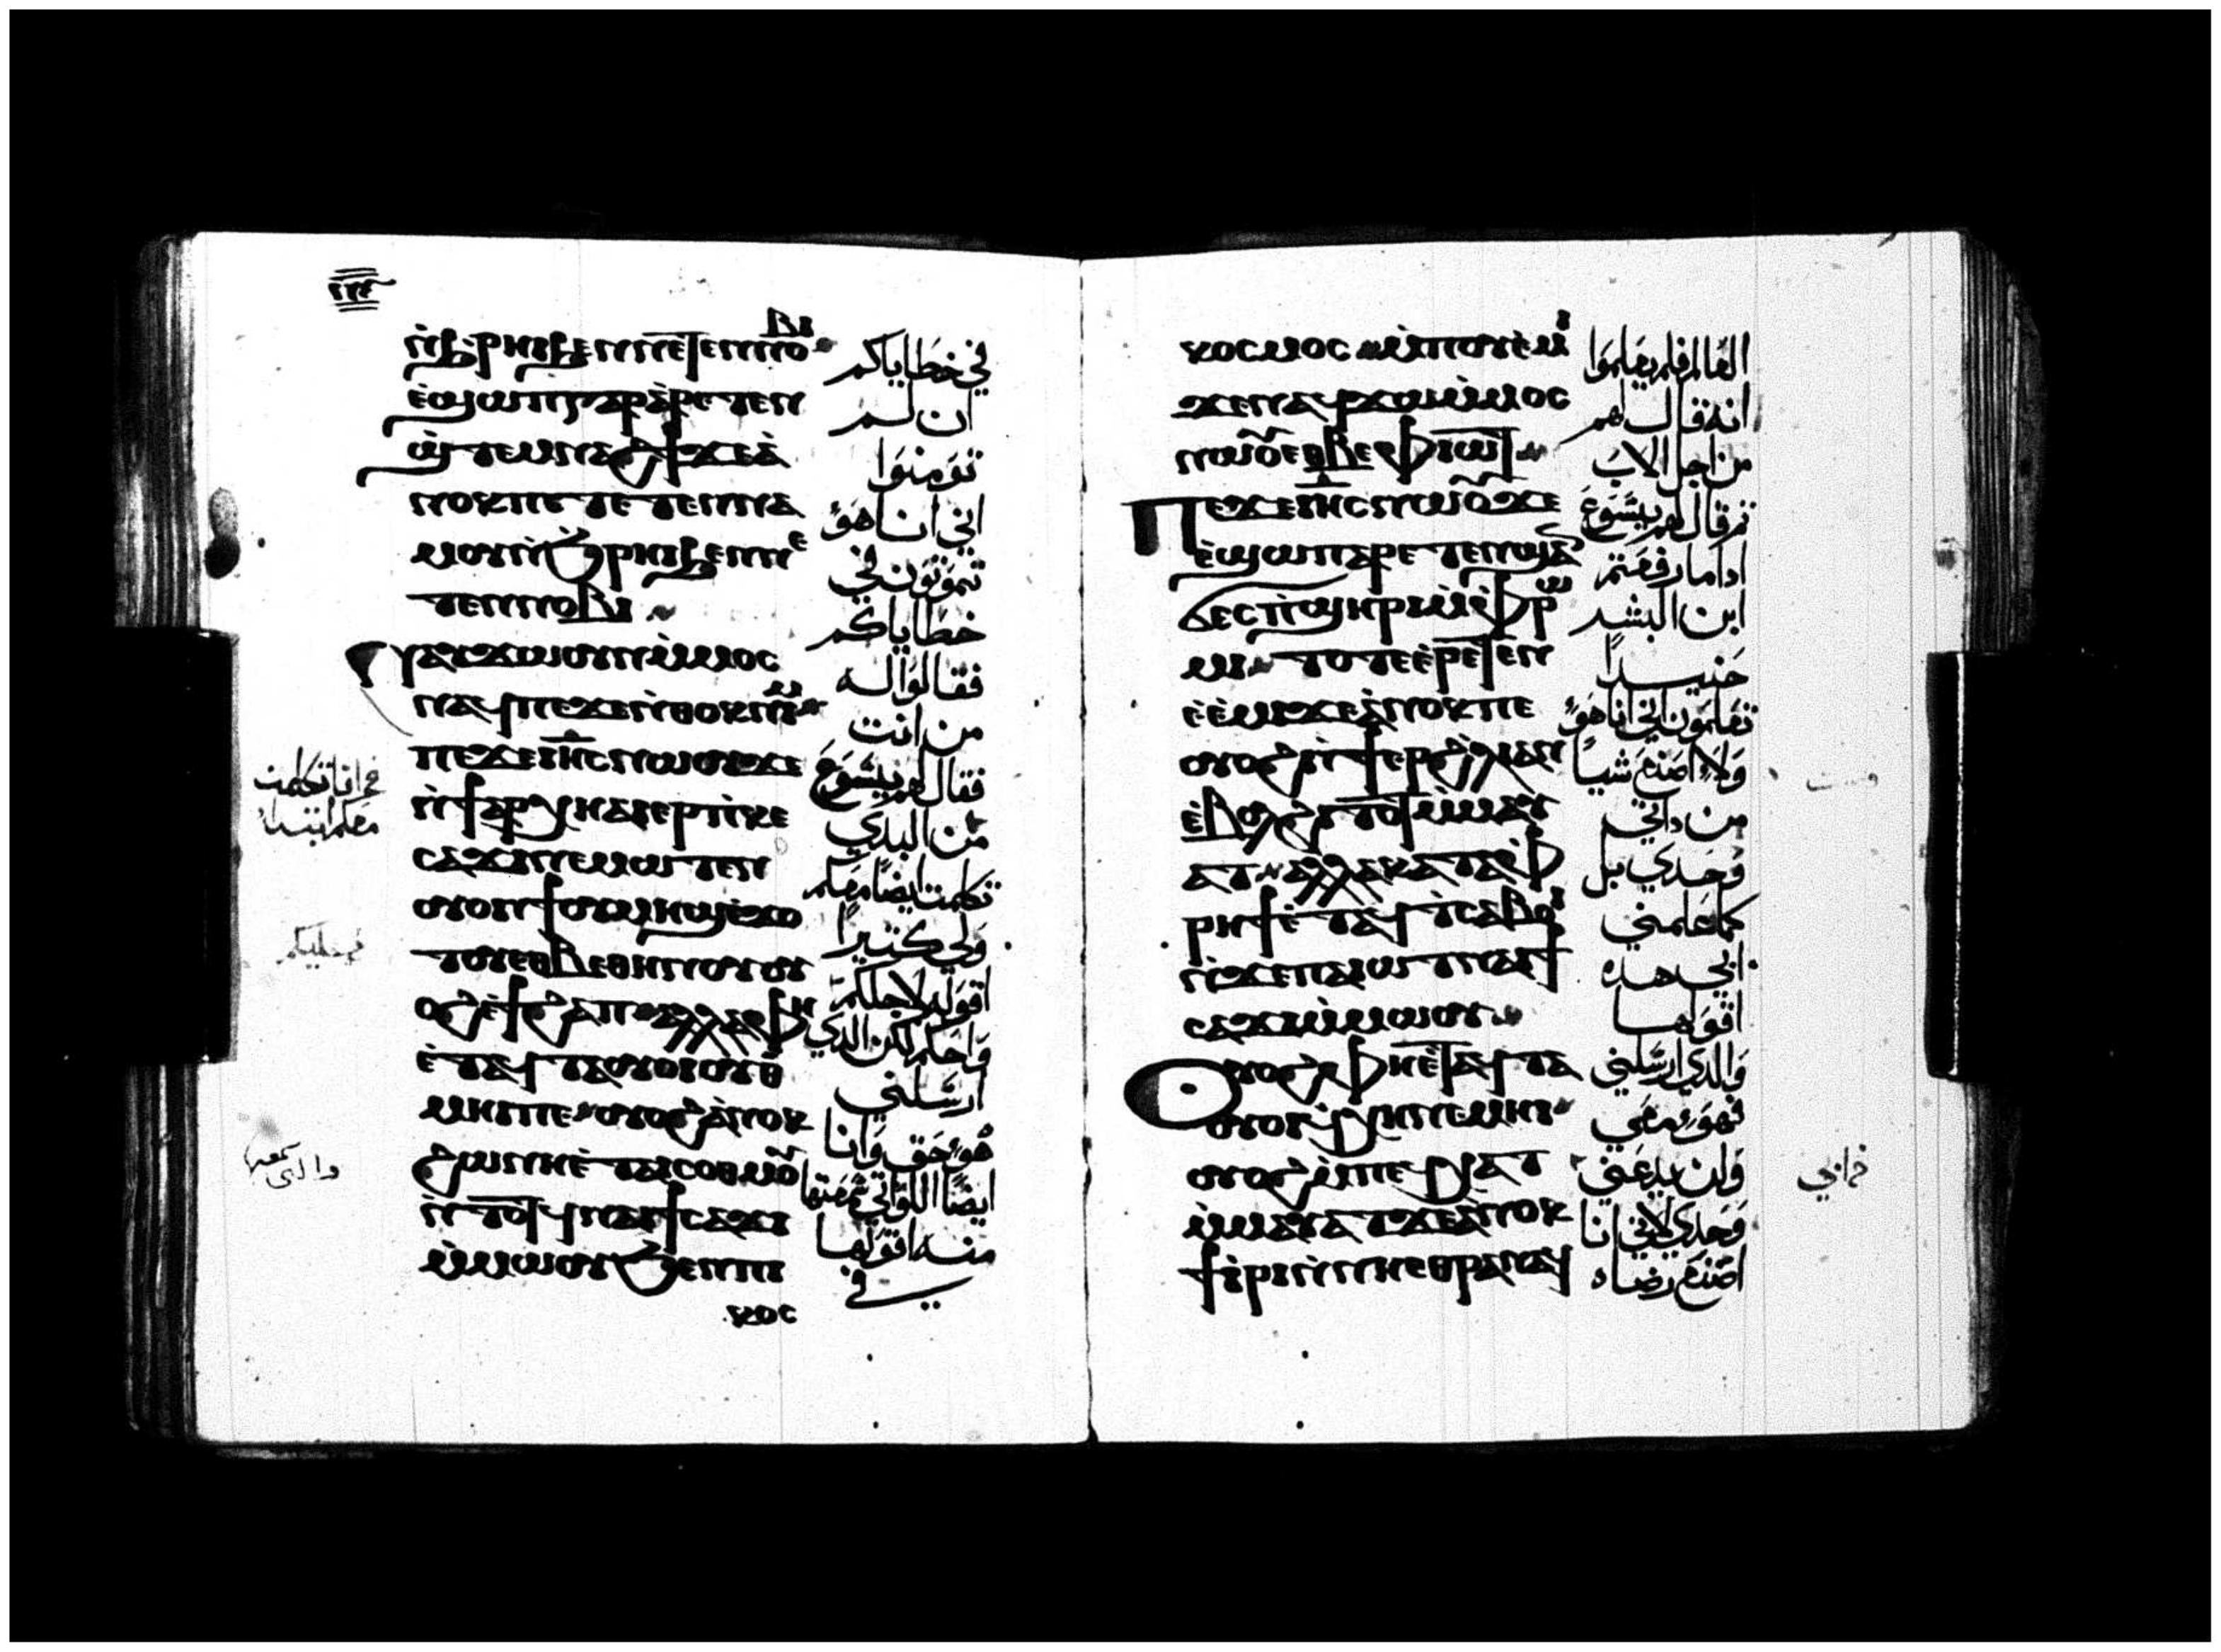 ⲛ̀ϧⲣⲏⲓϧⲉⲛⲛⲉⲧⲉⲛⲛⲟⲃⲓ
ⲉ̀ϣⲱⲡⲅⲁⲣⲁ̀ⲣⲉⲧⲉⲛ
ϣ̀ⲧⲉⲙⲛⲁϩϯϫⲉⲁ̀
ⲛⲟⲕⲡⲉⲧⲉⲧⲉⲛⲛⲁ
ⲙⲟⲩⲛ̀ϧⲣⲏⲓϧⲉⲛⲛⲉ
ⲧⲉⲛⲛⲟⲃⲓ
ⲛⲁⲩϫⲱⲟⲩⲛⲙ̀ⲙⲟⲥ
ⲛⲁϥⲡⲉϫⲉⲛ̀ⲑⲟⲕⲛⲓⲙ
ⲡⲉϫⲉⲓⲏ̅ⲥ̅ⲛⲱⲟⲩϫⲉ
ⲛ̀ϯⲁⲣⲭⲏⲁⲓⲉⲣⲡ̀ⲕⲉ
ⲥⲁϫⲓⲛⲉⲙⲱⲧⲉⲛ
ⲟⲩⲟⲛϯⲟⲩⲙⲏϣⲉ̀ϫⲟ
ⲧⲟⲩⲉⲑⲃⲉⲑⲏⲛⲟⲩⲟⲩ
ⲟϩⲉ̀ϯϩⲁⲡ ⲁⲗⲗⲁⲫⲏ
ⲉ̀ⲧⲁϥⲧⲁⲟⲩⲟⲓⲟⲩⲑ̀
ⲙⲏⲓⲡⲉ ⲟⲩⲟϩⲁ̀ⲛⲟⲕ
ϩⲱⲛⲏⲉ̀ⲧⲁⲓⲥⲟⲑⲙⲟⲩ
ⲛ̀ⲧⲟⲧϥⲛⲁⲓϯⲥⲁϫⲓ
ⲙ̀ⲙⲱⲟⲩϧⲉⲛⲡⲓ
ⲕⲟⲥ
في خطاياكم
ان لم
تومنوا
اني انا هو
تموتون في
خطاياكم
فقالوا له
من انت
فقال لهم يسوع
من البدي
تكلمت ايضا معكم
ولي كثيرا
اقوله لاجلكم
واحكم لكن الذي
ارسلني
هو حق وانا
ايضا اللواتي سمعتها
منه اقولها
في
ⲕⲟⲥⲙⲟⲥ ⲙ̀ⲡⲟⲩⲉ̀ⲙⲓ
ϫⲉⲛⲁϥϫⲱⲙ̀ⲙⲟⲥ
ⲛⲱⲟⲩⲉⲑⲃⲉⲫⲓⲱⲧ
ⲡⲉϫⲉⲓⲏ̅ⲥ̅ⲛⲱⲟⲩϫⲉ
ⲉ̀ϣⲱⲡⲁⲣⲉⲧⲉⲛϣⲁⲛ
ϭⲉⲥⲡ̀ϣⲏⲣⲓⲙ̀ⲫⲣⲱ
ⲙⲓ ⲧⲟⲧⲉⲉ̀ⲣⲉⲧⲉⲛ
ⲉ̀ⲉ̀ⲙⲓϫⲉⲁ̀ⲛⲟⲕⲡⲉ
ⲟⲩⲟϩⲛ̀ϯⲉⲣϩ̀ⲗⲓⲁⲛ
ⲉ̀ⲃⲟⲗϩⲓⲧⲟⲧⲙ̀ⲙⲁⲩ
ⲁⲧ ⲁⲗⲗⲁⲕⲁⲧⲁⲫ̀
ⲣⲏϯⲉ̀ⲧⲁϥⲧ̀ⲥⲁⲃⲟⲓ
ⲛ̀ϫⲉⲡⲁⲓⲱⲧⲛⲁⲓϯ
ⲥⲁϫⲓⲙ̀ⲙⲱⲟⲩ
ⲟⲩⲟϩⲫⲏⲉ̀ⲧⲁϥⲧⲁ
ⲟⲩⲟⲓϥ̀ⲭⲏⲛⲉⲙⲏⲓ
ⲟⲩⲟϩⲙ̀ⲡⲉϥⲭⲁⲧ
ⲙ̀ⲙⲁⲩⲁⲧϫⲉⲁ̀ⲛⲟⲕ
ϯⲓ̀ⲣⲓⲛ̀ⲛⲏⲉⲑⲣⲁⲛⲁϥ
العالم فلم يعلموا
انه قال لهم
من اجل الاب
ثم قال لهم يسوع
اداما رفعتم
ابن البشر
حنيدا
تعلمون اني انا هو
ولا اصنع شيا
من داتي
وحدي بل
كما علمني
ابي هده
اقولها
والدي ارسلني
فهو معي
ولن يدعني
وحدي لاني انا
اصنع رضاه